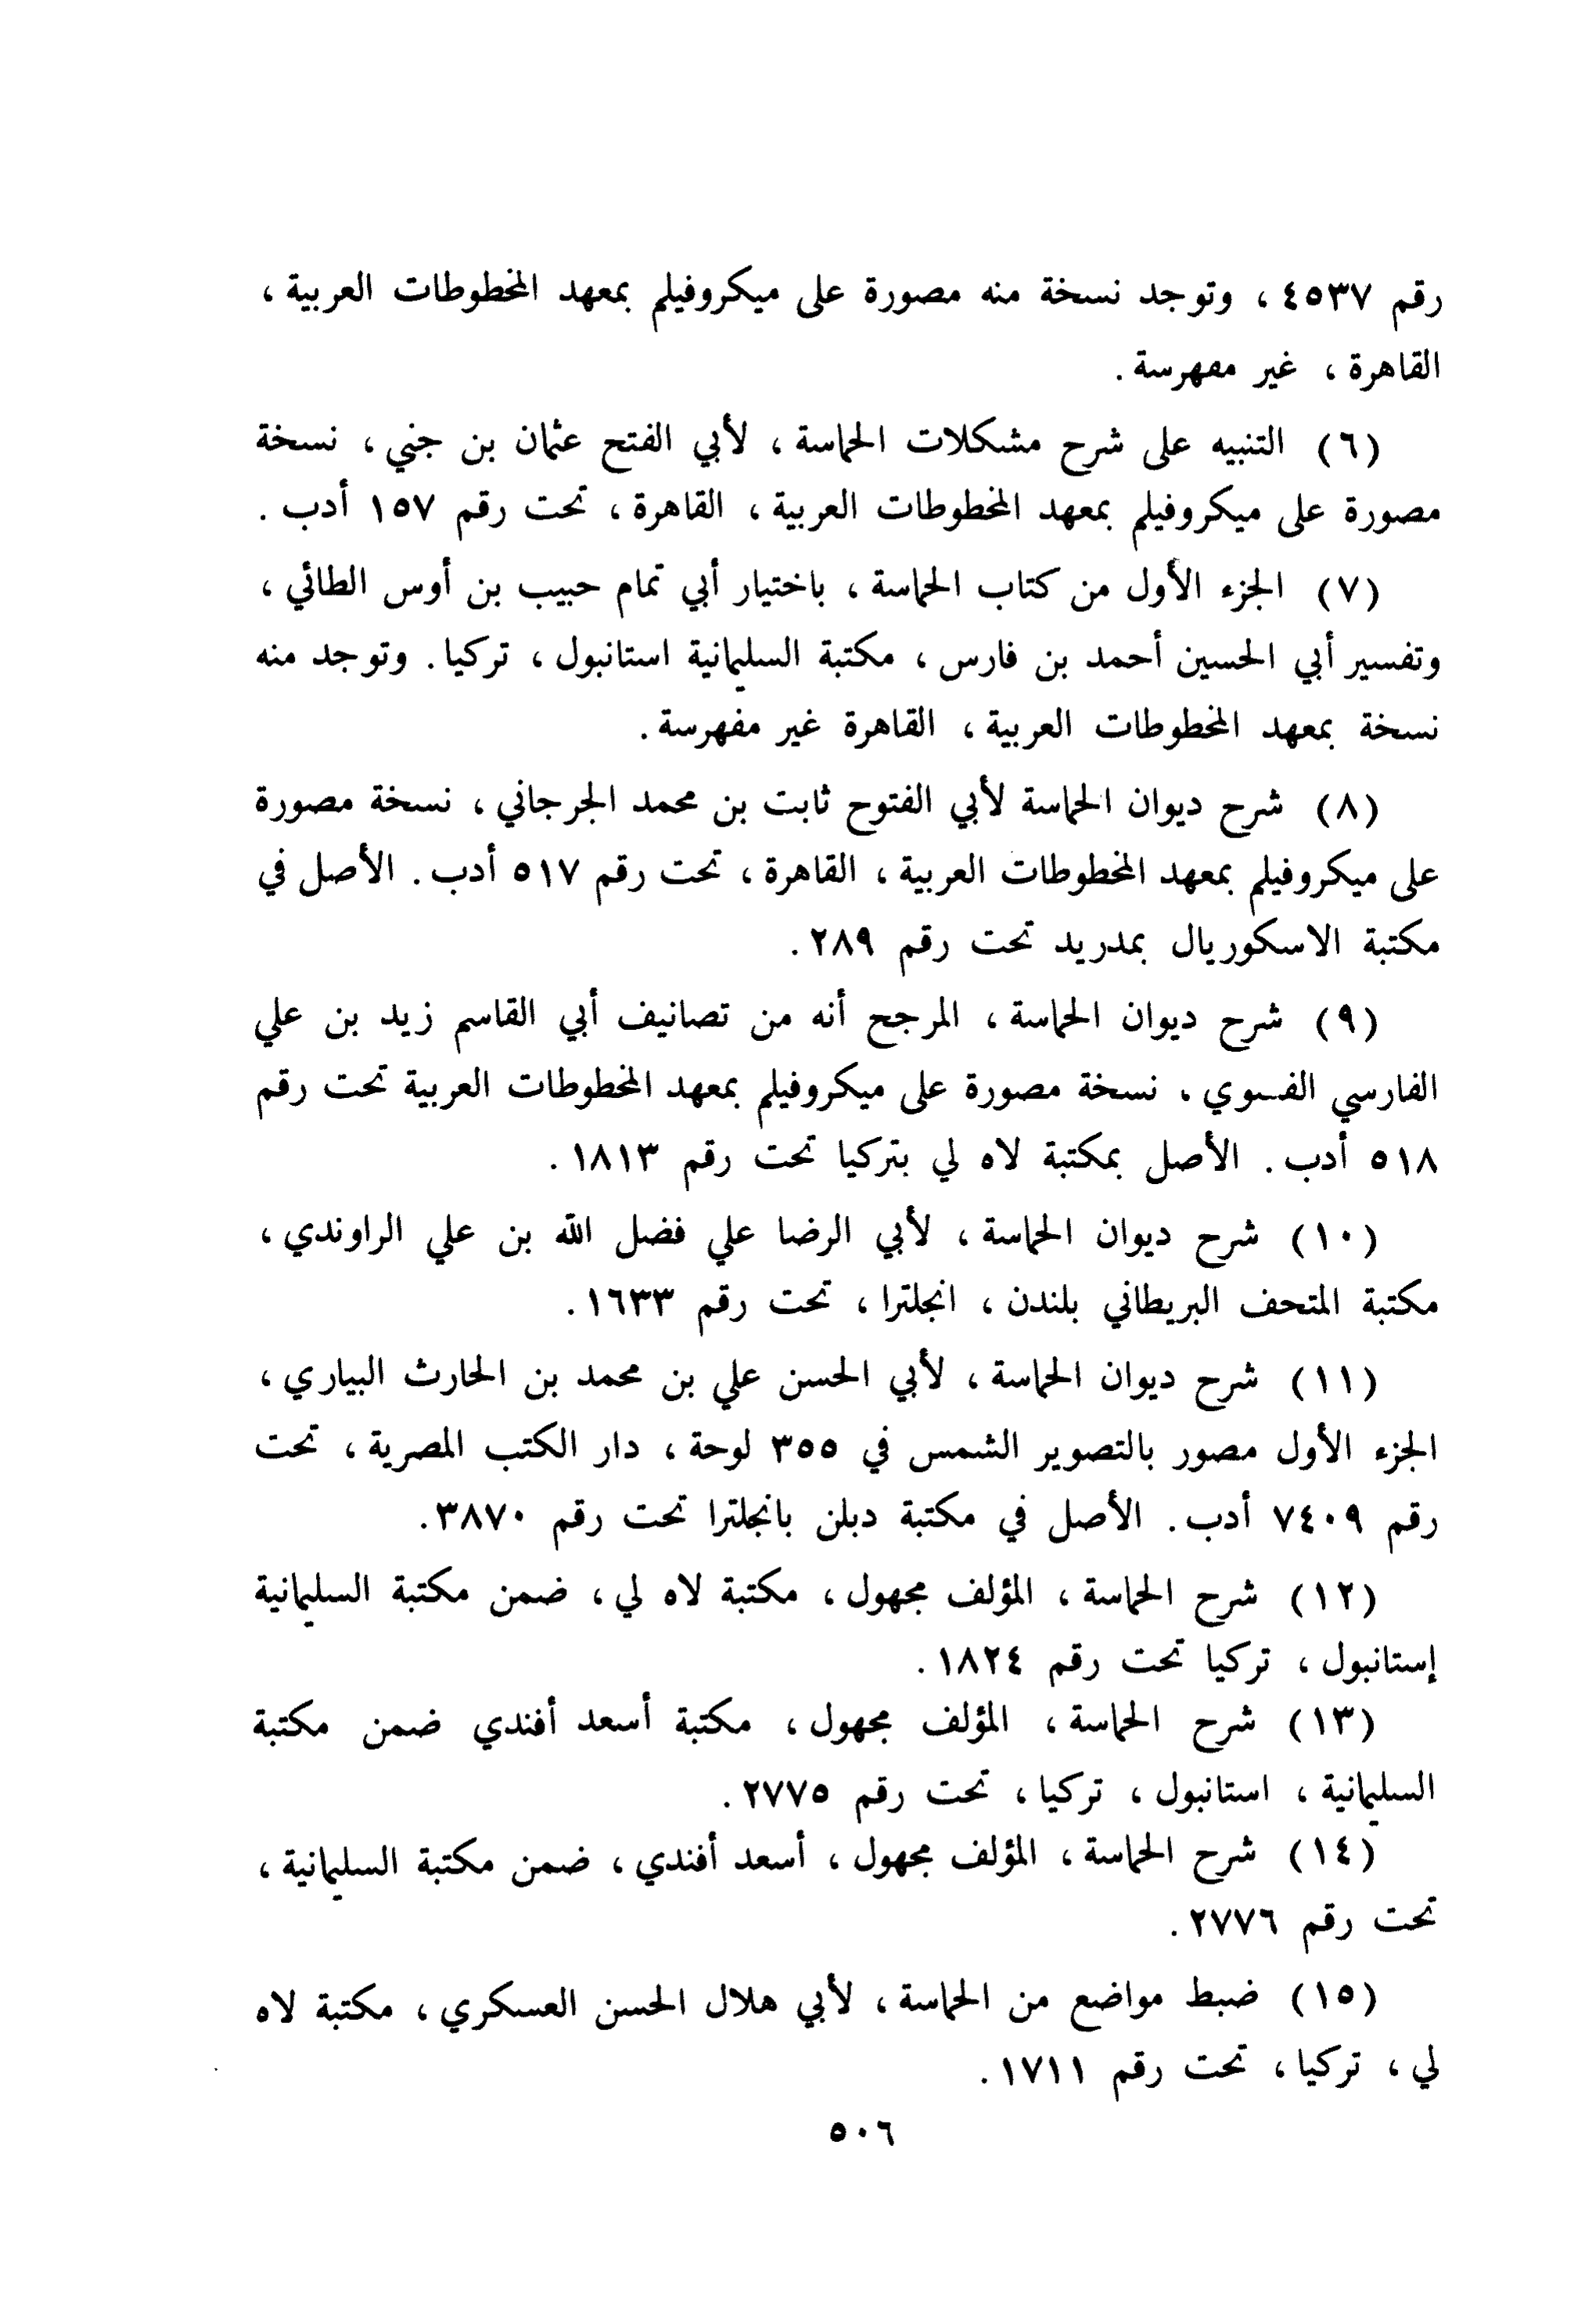 رقم ٤٥٣٧ ، وتوجد نسخة منه مصورة على ميكروفيلم بمعهد المخطوطات العربية ،
القاهرة ، غير مفهرسة .
(٦) التنبيه على شرح مشكلات الحماسة ، لأبي الفتح عثمان بن جني ، نسخة
مصورة على ميكروفيلم بمعهد المخطوطات العربية ، القاهرة ، تحت رقم ١٥٧ أدب .
(٧) الجزء الأول من كتاب الحماسة ، باختيار أبي تمام حبيب بن أوس الطائي ،
وتفسير أبي الحسين أحمد بن فارس ، مكتبة السليمانية استانبول ، تركيا . وتوجد منه
نسخة بمعهد المخطوطات العربية ، القاهرة غير مفهرسة .
(٨) شرح ديوان الحماسة لأبي الفتوح ثابت بن محمد الجرجاني ، نسخة مصورة
على ميكروفيلم بمعهد المخطوطات العربية ، القاهرة ، تحت رقم ٥١٧ أدب . الأصل في
مكتبة الاسكوريال بمدريد تحت رقم ٢٨٩ .
(٩) شرح ديوان الحماسة ، المرجح أنه من تصانيف أبي القاسم زيد بن علي
الفارسي الفسوي ، نسخة مصورة على ميكروفيلم بمعهد المخطوطات العربية تحت رقم
٥١٨ أدب . الأصل بمكتبة لاه لي بتركيا تحت رقم ١٨١٣ .
(١٠) شرح ديوان الحماسة ، لأبي الرضا علي فضل الله بن علي الراوندي ،
مكتبة المتحف البريطاني بلندن ، انجلترا ، تحت رقم ١٦٣٣ .
(١١) شرح ديوان الحماسة ، لأبي الحسن علي بن محمد بن الحارث البياري ،
الجزء الأول مصور بالتصوير الشمس في ٣٥٥ لوحة ، دار الكتب المصرية ، تحت
رقم ٧٤٠٩ أدب . الأصل في مكتبة دبلن بانجلترا تحت رقم ٣٨٧٠ .
(١٢) شرح الحماسة ، المؤلف مجهول ، مكتبة لاه لي ، ضمن مكتبة السليمانية
إستانبول ، تركيا تحت رقم ١٨٢٤ .
(١٣) شرح الحماسة ، المؤلف مجهول ، مكتبة أسعد أفندي ضمن مكتبة
السليمانية ، استانبول ، تركيا ، تحت رقم ٢٧٧٥ .
(١٤) شرح الحماسة ، المؤلف مجهول ، أسعد أفندي ، ضمن مكتبة السليمانية ،
تحت رقم ٢٧٧٦ .
(١٥) ضبط مواضع من الحماسة ، لأبي هلال الحسن العسكري ، مكتبة لاه
لي ، تركيا ، تحت رقم ١٧١١ .
٥٠٦